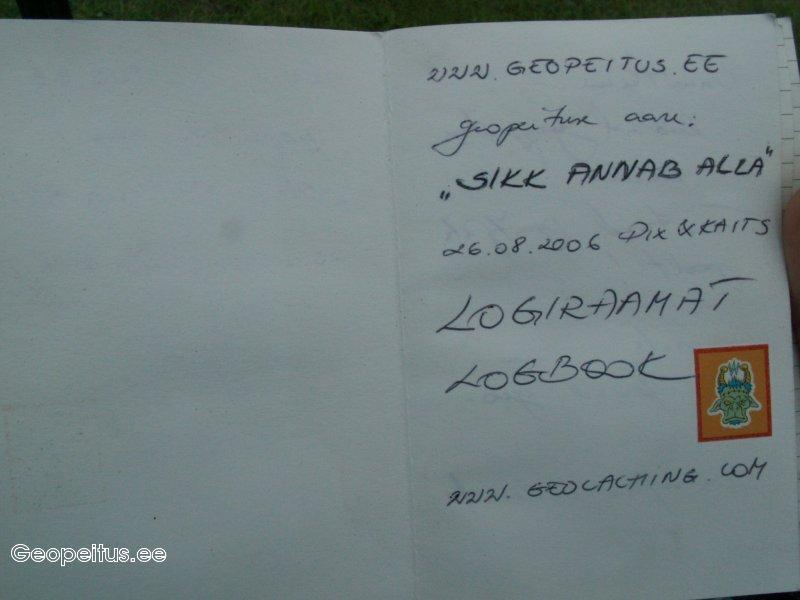 www.GEOPEITUS.EE
geopeituse aare:
„SIKK ANNAB ALLA"
26.08.2006 Pix & KAITS
LOGIRAAMAT
LOGBOOK
www.GEOCACHING.COM
Geopeitus.ee